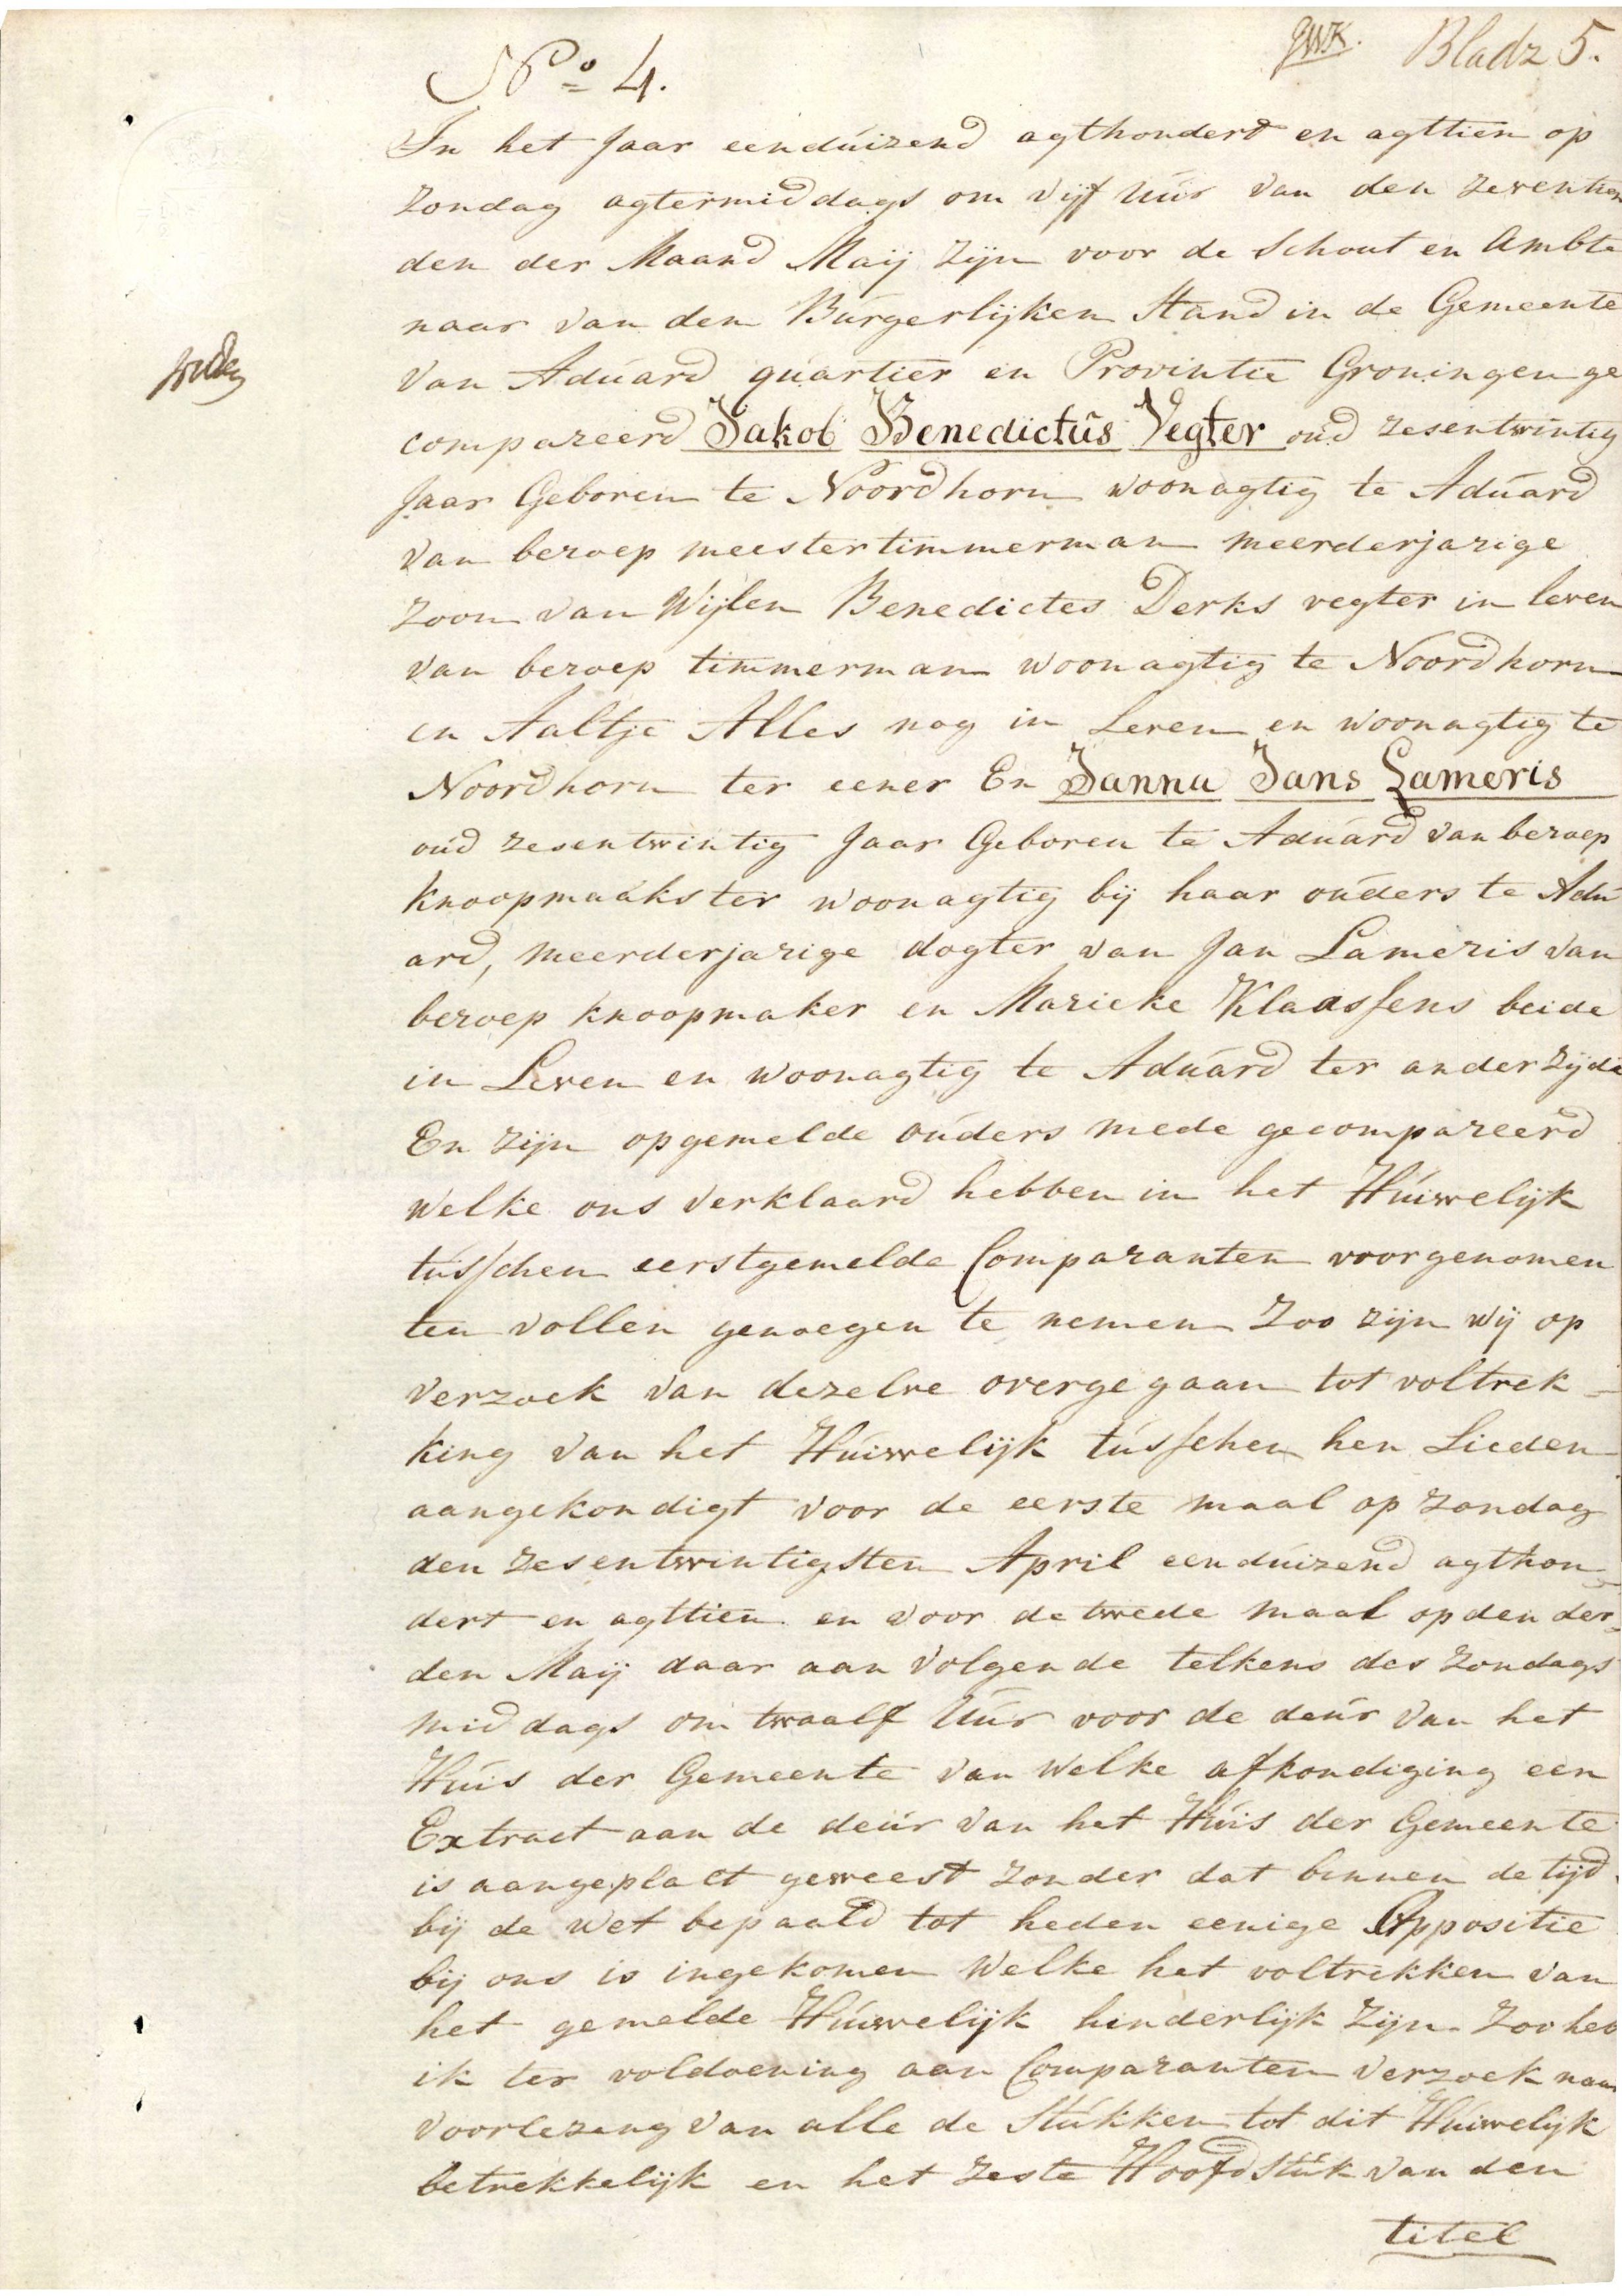 JWK. Bladz 5.
No 4.
In het Jaar eenduizend agthondert en agttien op
Zondag agtermiddags om vijf Uur van den zeventien
den der Maand Maij zijn voor de Schout en Ambte
naar van den Burgerlijken Stand in de Gemeente
van Aduard quartier en Provintie Groningen ge
compareerd Jakob Benedictus Vegter oud zesentwintig
Jaar Geboren te Noordhorn woonagtig te Aduard
van beroep meestertimmerman meerderjarige
zoon van Wijlen Benedictes Derks vegter in leven
van beroep timmerman woonagtig te Noordhorn
en Aaltje Alles nog in Leven en woonagtig te
Noordhorn ter eener En Janna Jans Lameris
oud zesentwintig Jaar Geboren te Aduard van beroep
knoopmaakster woonagtig bij haar ouders te Adu
ard, meerderjarige dogter van Jan Lameris van
beroep knoopmaker en Marieke Klaassens beide
in Leven en woonagtig te Aduard ter ander zijde
En zijn opgemelde ouders mede gecompareerd
welke ons verklaard hebben in het Huiwelijk
tusschen eerstgemelde Comparanten voorgenomen
ten vollen genoegen te nemen Zoo zijn wij op
verzoek van dezelve overgegaan tot voltrek-
king van het Huiwelijk tusschen hen Lieden
aangekondigt voor de eerste maal op zondag
den zesentwintigsten April eenduizend agthon-
dert en agttien en voor de twede maal op den der-
den Maij daar aan volgende telkens des Zondags
middags om twaalf Uur voor de deur van het
Huis der Gemeente van welke afkondiging een
Extract aan de deur van het Huis der Gemeente
is aangeplact geweest zonder dat binnen de tijd
bij de wet bepaald tot heden eenige Oppositie
bij ons is ingekomen welke het voltrekken van
het gemelde Huiwelijk hinderlijk zijn. Zoo heb
ik ter voldoening aan Comparanten verzoek naar
voorlezing van alle de Stukken tot dit Huiwelijk
betrekkelijk en het zeste Hoofdstuk van den
titel